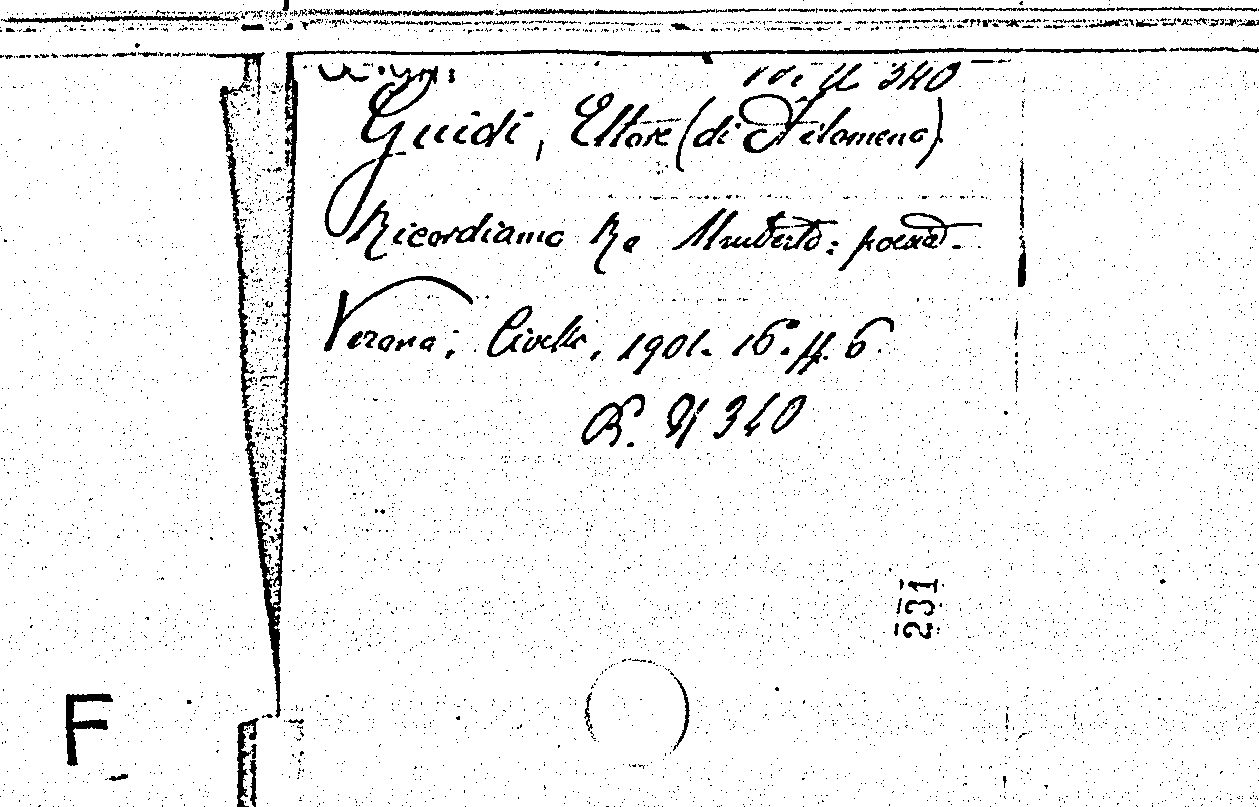 340
Guidi, Ettore (di Filomena)
Ricordiamo Re Umberto: poesia.
Verona; Civelli, 1901. 16°. ff. 6
B. N 340
231
F